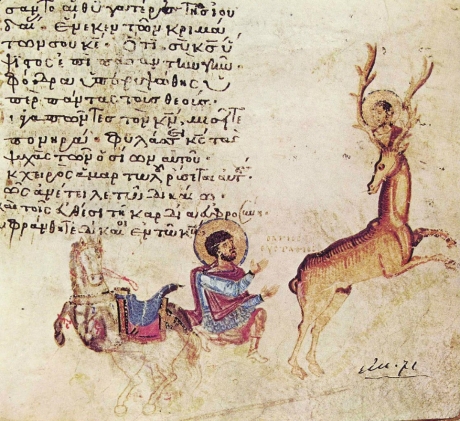 σαντο αἱ θυγατέρες τῆς ἰου
δαί ἕνεκεν τῶν κριμά
των σου κε· ὅτι σὺ κς ὕ
ψιστος ἐπὶ πᾶσαν τὴν γῆν·
σφόδρα ὑπερυψώθης
ὑπὲρ πάντας τοὺς θεούς·
οἱ ἀγαπῶντες τὸν κν, μισεῖτε
πονηρά· φυλάσσει κς τὰς
ψυχὰς τῶν ὁσίων αὐτοῦ·
ἐκ χειρὸς ἁμαρτωλῶν ῥύσεται αὐτ
φῶς ἀνέτειλε τῷ δικαίω
καὶ τοῖς εὐθέσι τῇ καρδία εὐφροσύν
εὐφράνθητε δίκαιοι ἐν τῷ κω